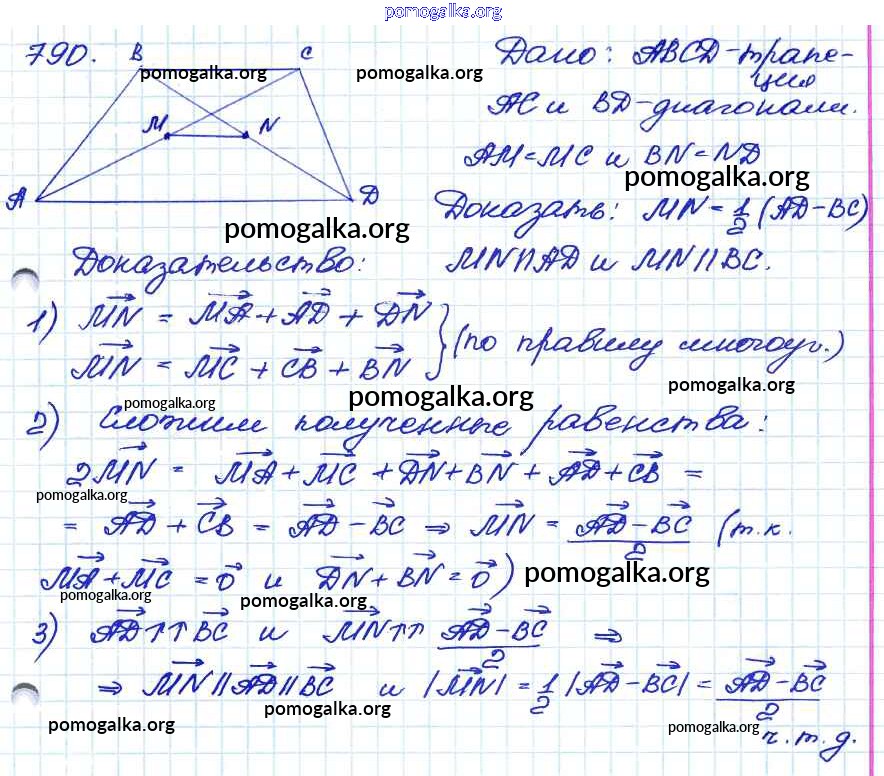 pomogalka.org
790.
B
C
pomogalka.org
pomogalka.org
M
N
A
D
pomogalka.org
Дано: ABCD-трапе-
ция
AC и BD-диагонали.
AM=MC и BN=ND
pomogalka.org
Доказать: MN=1/2(AD-BC)
MN||AD и MN||BC.
Доказательство:
1) MN = MA+AD+DN
MN = MC+CB+BN } (по правилу многоуг.)
pomogalka.org
pomogalka.org
pomogalka.org
2) Сложим полученные равенства:
2MN = MA+MC+DN+BN+AD+CB =
pomogalka.org
= AD+CB = AD-BC ⇒ MN = AD-BC/2 (т.к.
MA+MC=0 и DN+BN=0)
pomogalka.org
pomogalka.org
pomogalka.org
3) AD↑↑BC и MN↑↑ AD-BC/2 ⇒
⇒ MN||AD||BC и |MN|=1/2|AD-BC|= AD-BC/2
pomogalka.org
pomogalka.org
pomogalka.org
ч.т.д.